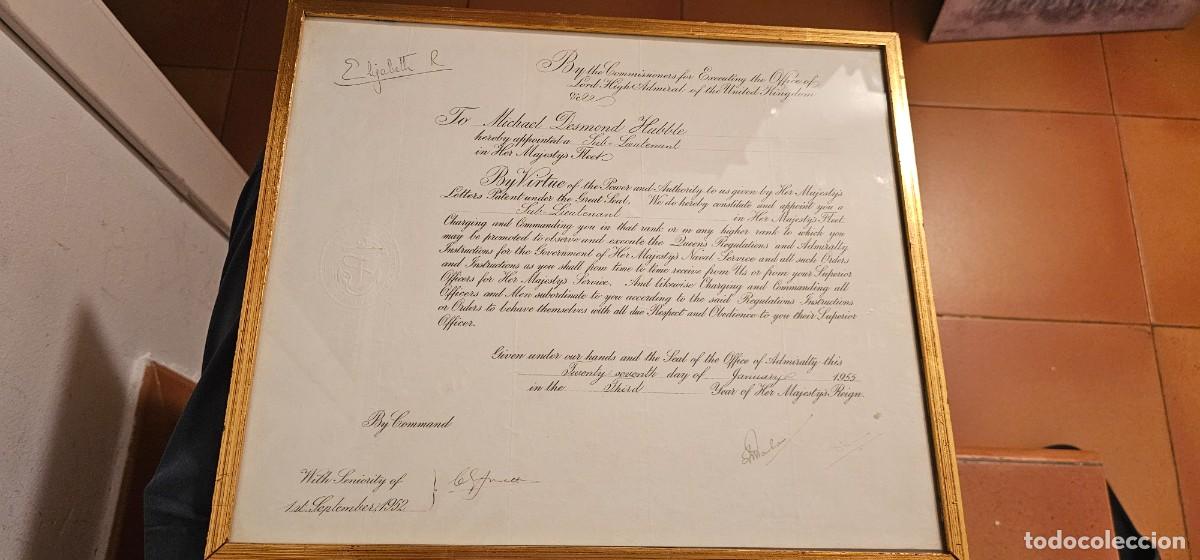 Elizabeth R
By the Commissioners for Executing the Office of
Lord High Admiral of the United Kingdom
&c
To Michael Desmond Hubble
hereby appointed a Sub-Lieutenant
in Her Majesty's Fleet
By Virtue of the Power and Authority to us given by Her Majesty's
Letters Patent under the Great Seal, We do hereby constitute and appoint you a
Sub-Lieutenant in Her Majesty's Fleet.
Charging and Commanding you in that rank or in any higher rank to which you
may be promoted to observe and execute the Queens Regulations and Admiralty
Instructions for the Government of Her Majesty's Naval Service and all such Orders
and Instructions as you shall from time to time receive from Us or from your Superior
Officers for Her Majesty's Service. And likewise Charging and Commanding all
Officers and Men subordinate to you according to the said Regulations Instructions
or Orders to behave themselves with all due Respect and Obedience to you their Superior
Officer.
Given under our hands and the Seal of the Office of Admiralty this
Twenty seventh day of January 1955
in the Third Year of Her Majesty's Reign.
By Command
With Seniority of
1st September, 1952
todocoleccion